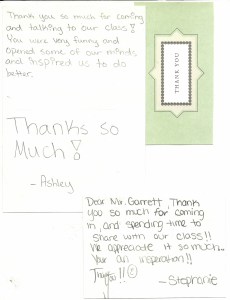 Thank you so much for coming
and talking to our class!
You were very funny and
opened some of our minds
and inspired us to do
better.
Thanks so
Much!
-Ashley
THANK YOU
Dear Mr. Garrett, Thank
you so much for coming
in, and spending time to
share with our class!!
We appreciate it so much...
Your an inspiration!!
-Stephanie